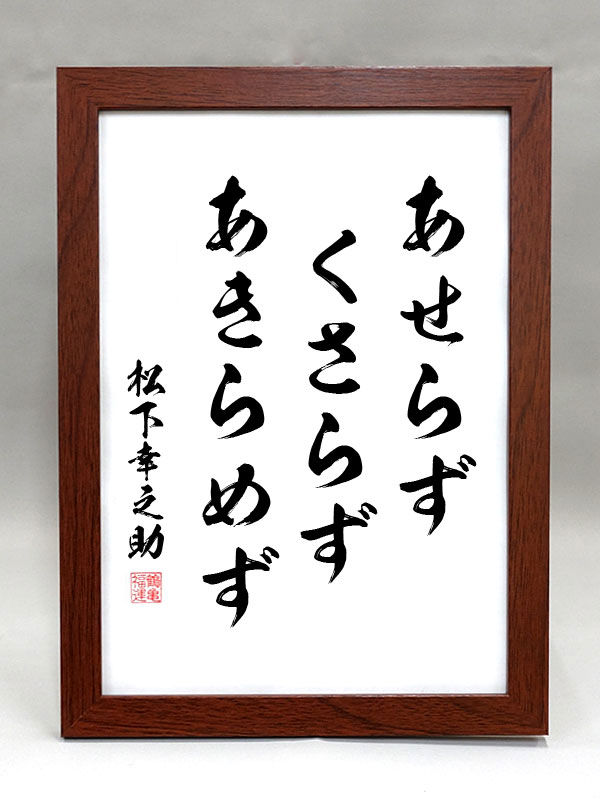 あせらず
くさらず
あきらめず
松下幸之助
鶴亀
福運